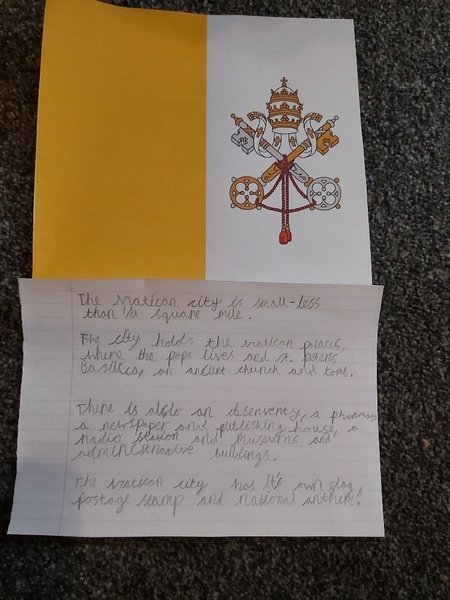 The Vatican city is small-less
than 1/2 square mile.
The city holds the vatican palaces,
where the pope lives and st. peters
Basileca, an ancient church and tomb.
There is also an a pharmacy
a newspaper and publishing house, a
radio station and museums and
administrative buildings.
The vatican city has it's own flag,
postage stamp and national anthem!